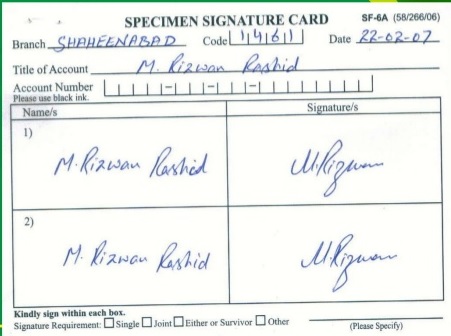 SPECIMEN SIGNATURE CARD SF-6A (58/266/06)
Branch SHAHEENABAD Code 1461 Date 22-02-07
Title of Account M. Rizwan Rashid
Account Number
Please use black ink.
Name/s Signature/s
1)
M. Rizwan Rashid M.Rizwan
2)
M. Rizwan Rashid M.Rizwan
Kindly sign within each box.
Signature Requirement: Single Joint Either or Survivor Other
(Please Specify)